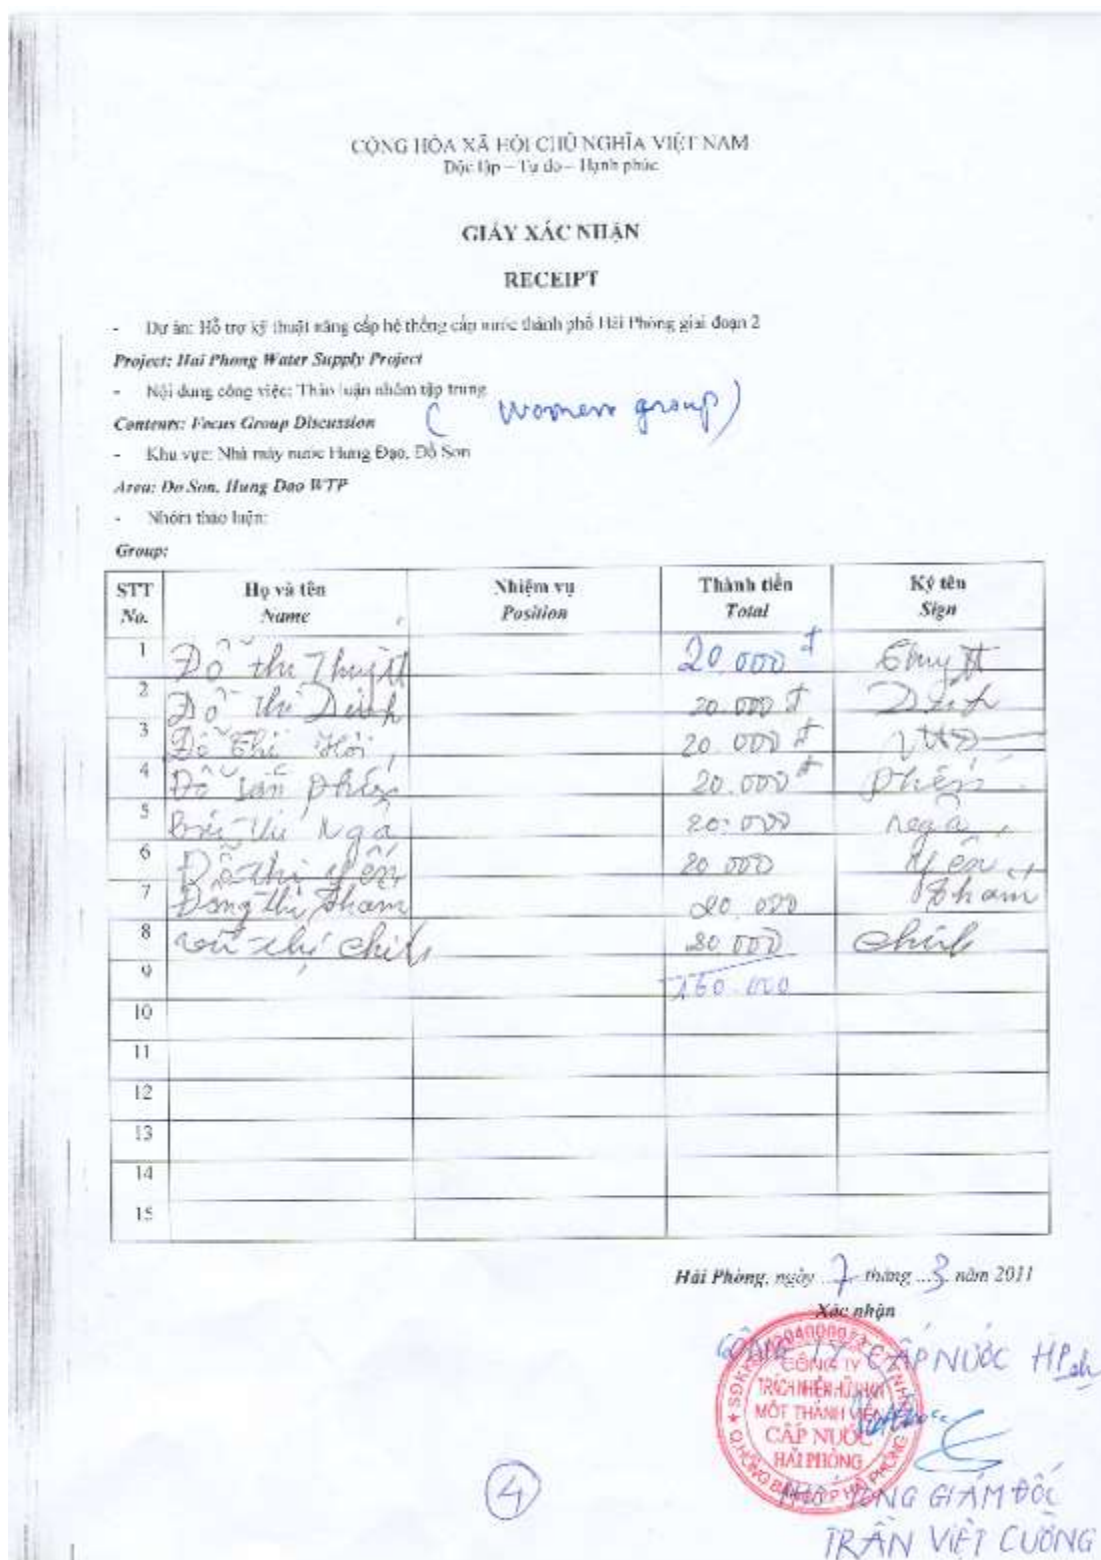 CỘNG HÒA XÃ HỘI CHỦ NGHĨA VIỆT NAM
Độc lập – Tự do – Hạnh phúc
GIẤY XÁC NHẬN
RECEIPT
- Dự án: Hỗ trợ kỹ thuật nâng cấp hệ thống cấp nước thành phố Hải Phòng giai đoạn 2
Project: Hai Phong Water Supply Project
- Nội dung công việc: Thảo luận nhóm tập trung
Contents: Focus Group Discussion ( Women group)
- Khu vực: Nhà máy nước Hưng Đạo, Đồ Sơn
Area: Do Son, Hung Dao WTP
- Nhóm thảo luận:
Group:
STT Họ và tên Nhiệm vụ Thành tiền Ký tên
No. Name Position Total Sign
1 Đỗ thị Thuyết 20.000 đ Thuyết
2 Đỗ thị 20.000 đ
3 Đỗ thị Hơi 20.000 đ
4 Đỗ 20.000 đ
5 Bùi thị Nga 20.000 nga
6 Đỗ thị yến 20.000 yến
7 thị tham 20.000 tham
8 thị 20.000
9 160.000
10
11
12
13
14
15
Hải Phòng, ngày 7 tháng 3 năm 2011
Xác nhận
CÔNG TY CẤP NƯỚC HP
CÔNG TY
TRÁCH NHIỆM HỮU HẠN
MỘT THÀNH VIÊN
CẤP NƯỚC
HẢI PHÒNG
PHÓ TỔNG GIÁM ĐỐC
TRẦN VIỆT CƯỜNG
4